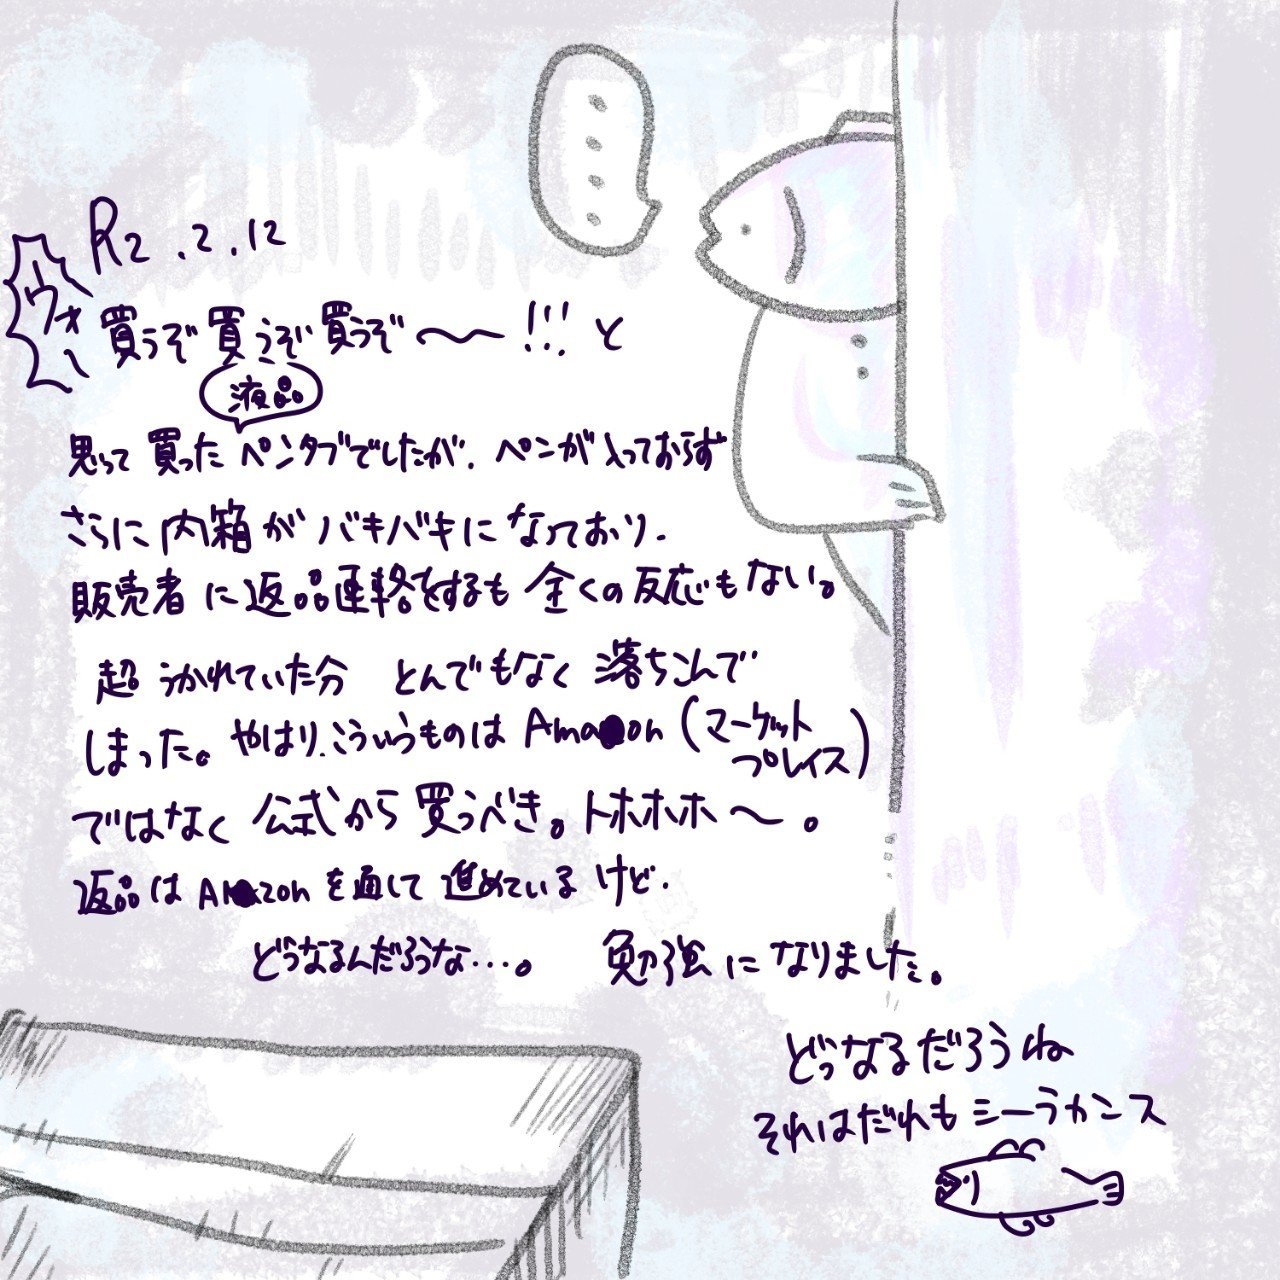 R2.2.12
ウォー
買うぞ買うぞ買うぞ〜!!!と
液晶
思って買ったペンタブでしたが、ペンが入っておらず
さらに内箱がバキバキになっており、
販売者に返品連絡をするも全くの反応もない。
超うかれていた分 とんでもなく落ちこんで
しまった。やはり、こういうものはAmazon(マーケット
プレイス)
ではなく公式から買うべき。トホホホ〜。
返品はAmazonを通して進めているけど、
どうなるんだろうな…。 勉強になりました。
どうなるだろうね
それはだれもシーラカンス